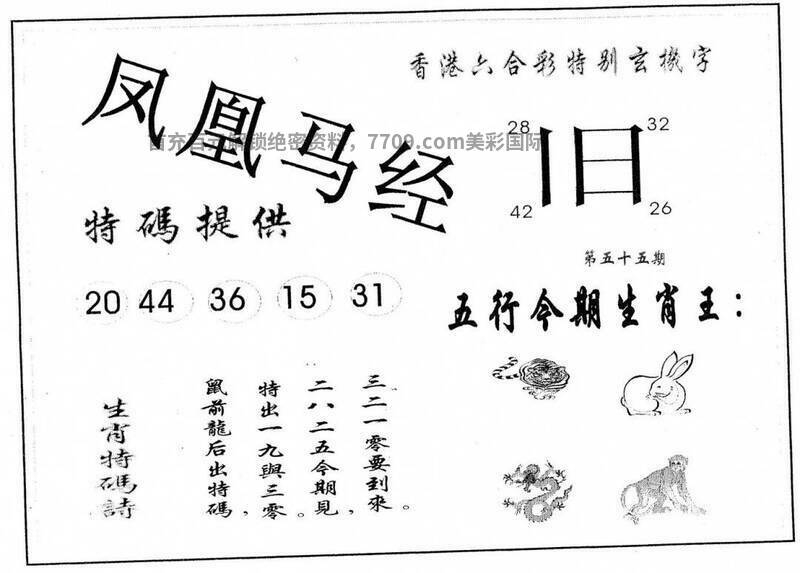 凤凰马经
香港六合彩特别玄機字
首充百元解锁绝密资料，7709.com美彩国际
28 32
旧
42 26
特碼提供
第五十五期
20 44 36 15 31
五行今期生肖王：
三二一零要到來。
二八二五今期見，
特出一九與三零。
鼠前龍后出特碼，
生肖特碼詩